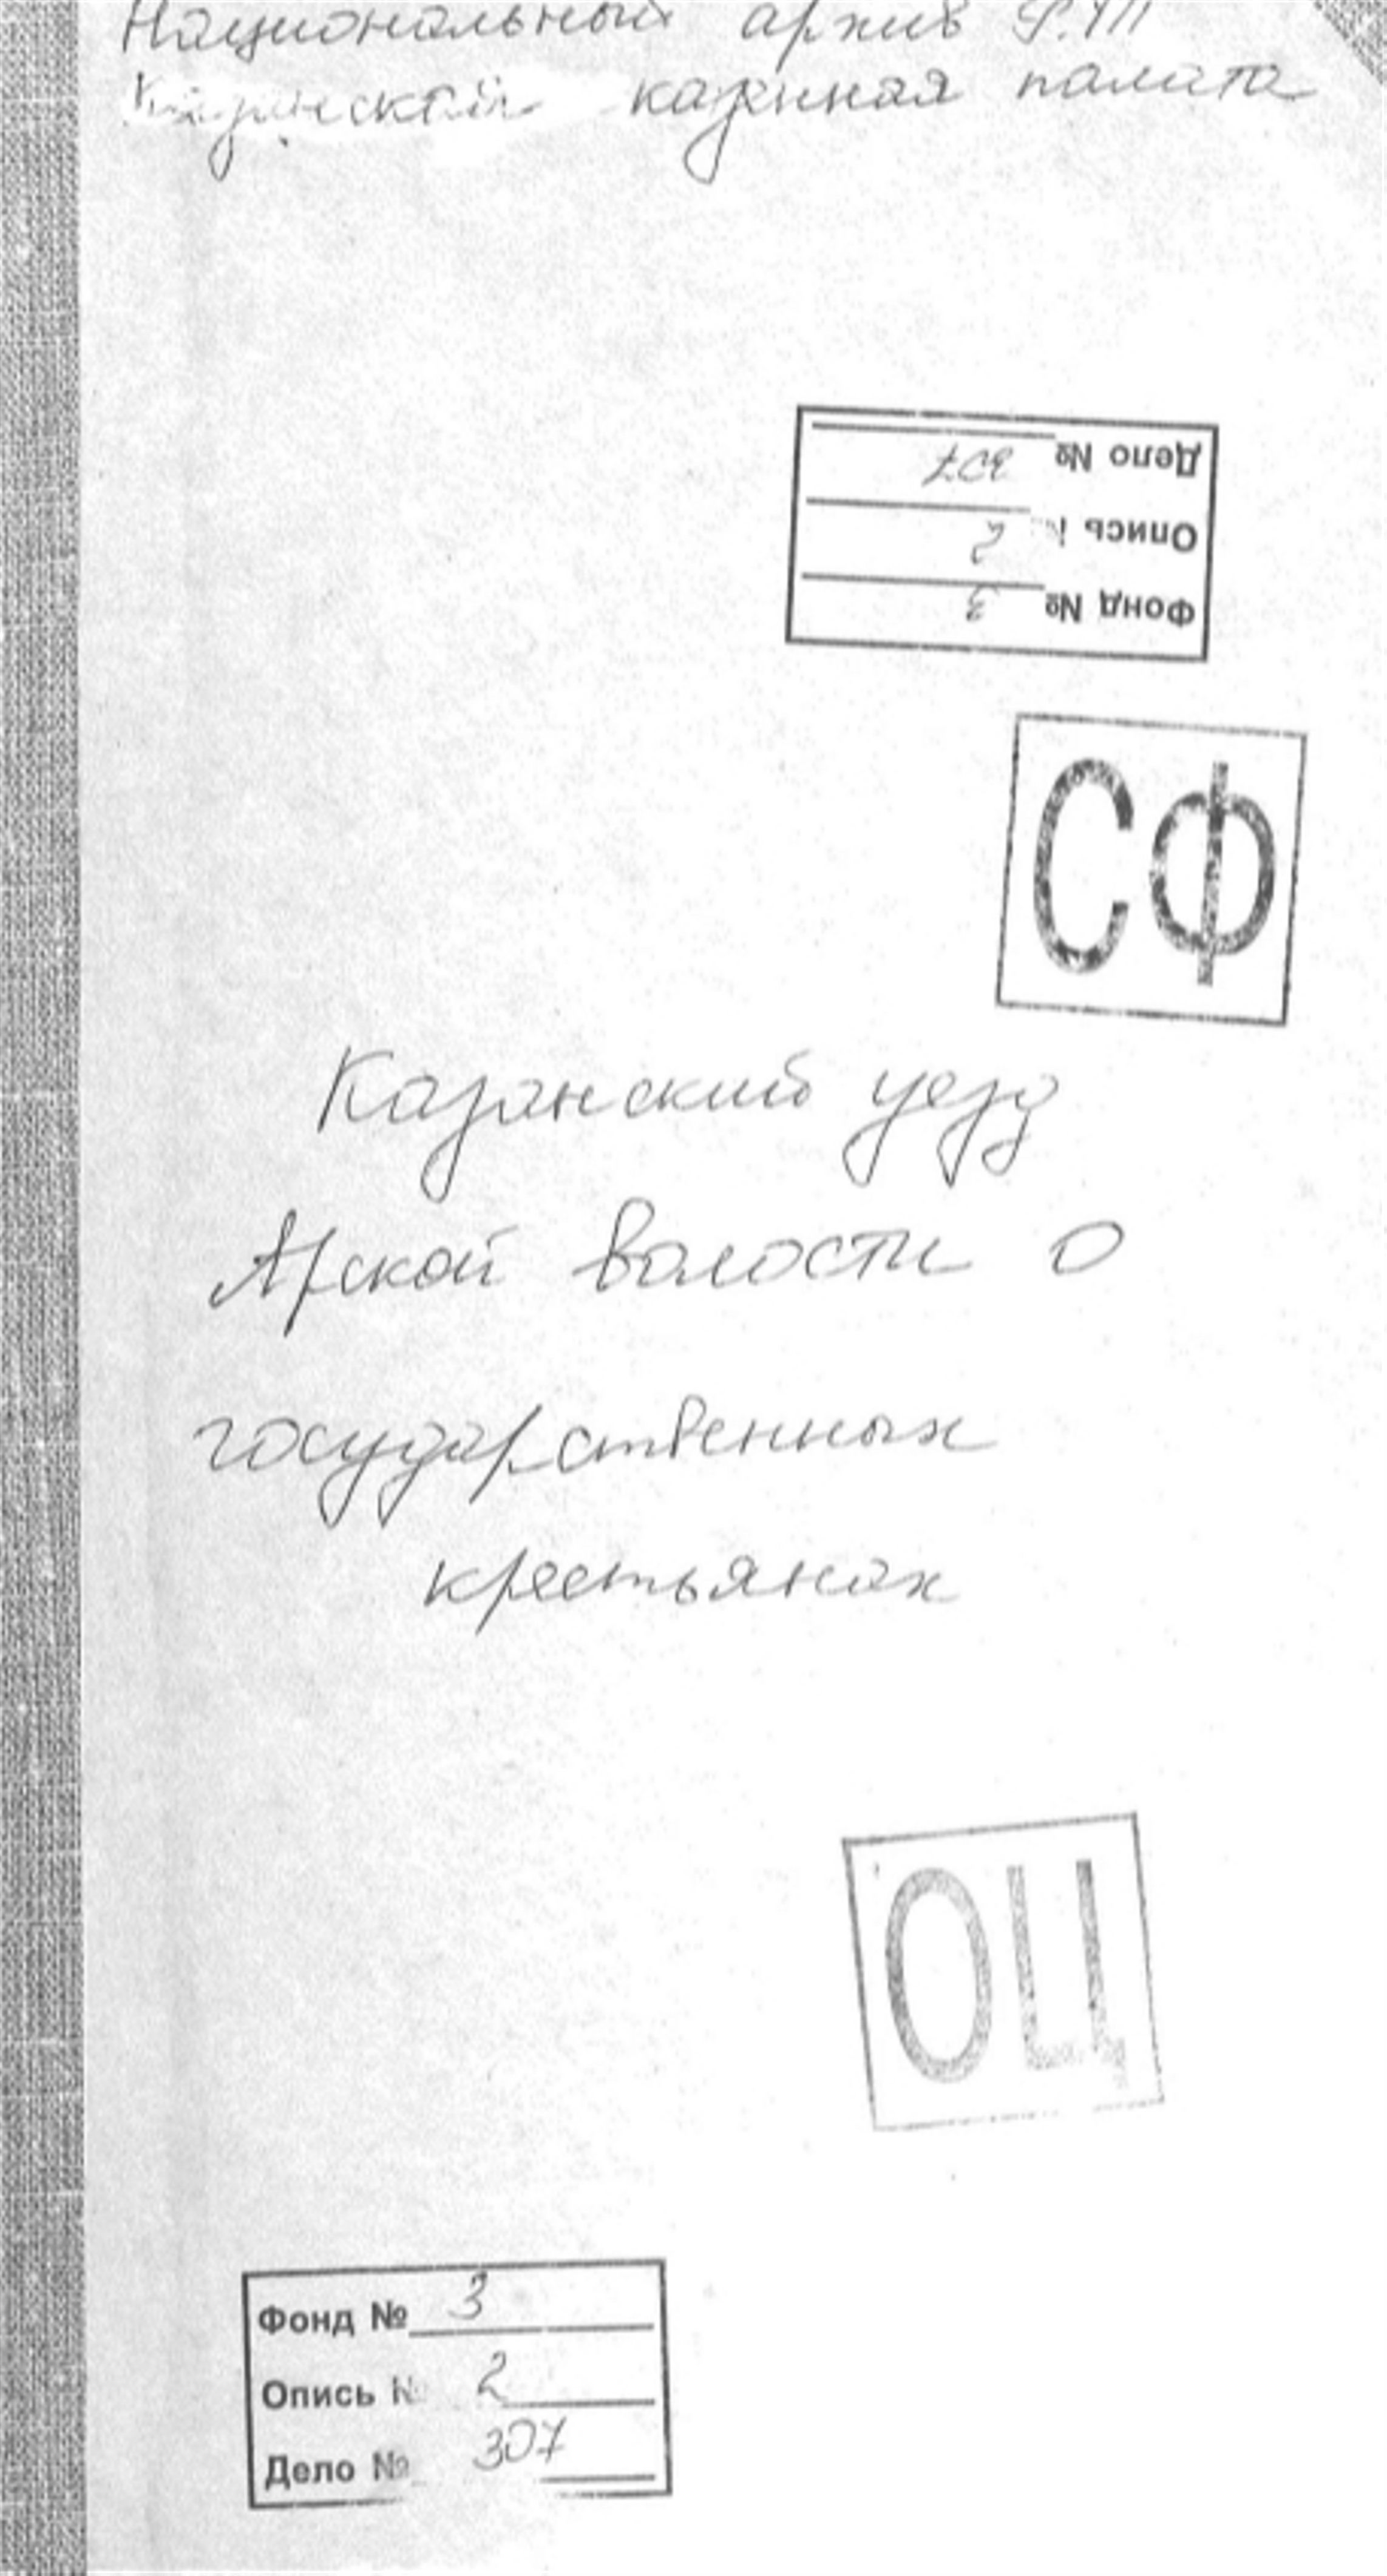 Национальный архив Р.Т
Казанская казенная палата
Дело № 307
Опись № 2
Фонд № 3
СФ
Казанский уезд
Арской волости о
государственных
крестьянах
ОЦ
Фонд № 3
Опись № 2
Дело № 307